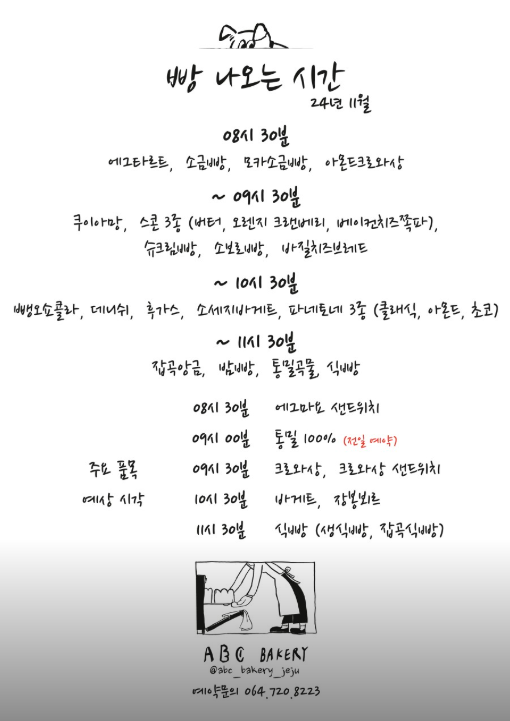 빵 나오는 시간
24년 11월
08시 30분
에그타르트, 소금빵, 모카소금빵, 아몬드크로와상
~ 09시 30분
쿠이아망, 스콘 3종 (버터, 오렌지 크랜베리, 베이컨치즈쪽파),
슈크림빵, 소보로빵, 바질치즈브레드
~ 10시 30분
뺑오쇼콜라, 데니쉬, 후가스, 소세지바게트, 파네토네 3종 (클래식, 아몬드, 초코)
~ 11시 30분
잡곡앙금, 밤빵, 통밀곡물, 식빵
08시 30분 에그마요 샌드위치
09시 00분 통밀 100% (전일 예약)
주요 품목 09시 30분 크로와상, 크로와상 샌드위치
예상 시각 10시 30분 바게트, 장봉뵈르
11시 30분 식빵 (생식빵, 잡곡식빵)
ABC BAKERY
@abc_bakery_jeju
예약문의 064.720.8223